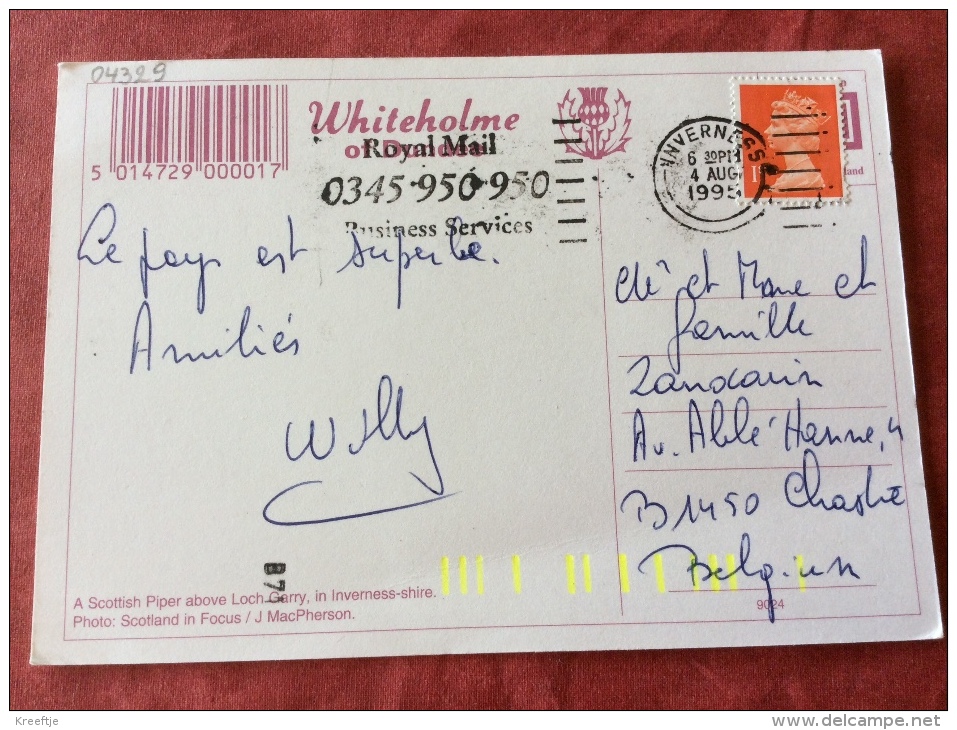 04329
Whiteholme
of Dundee
5 014729 000017
Royal Mail
0345·950·950
Business Services
INVERNESS
6 30PM
4 AUG
1995
1st
land
Le pays est superbe.
Amitiés
Willy
et Marie et
famille
Av. Abbé Hanne, 4
B1450 Chastre
Belgium
B7
A Scottish Piper above Loch Garry, in Inverness-shire.
Photo: Scotland in Focus / J MacPherson.
9024
Kreeftje
http://www.delcampe.net